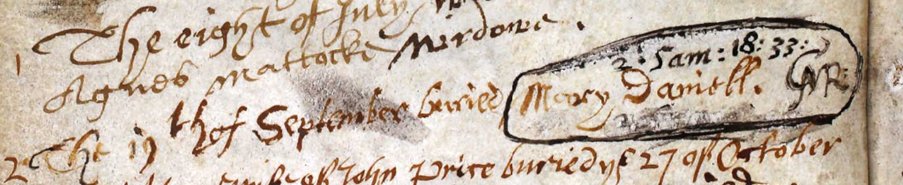 The eight of July
Agnes Mattocke Wirdowe.
2: Sam: 18: 33:
The 19 th of September buried Mary Daniell. GR:
2 John Price buried ye 27 of October